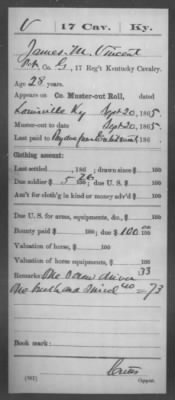 V | 17 Cav. | Ky.
James M. Vincent
Co. G, 17 Reg't Kentucky Cavalry.
Age 28 years.
Appears on Co. Muster-out Roll, dated
Louisville Ky Sept 20, 1865.
Muster-out to date Sept 20, 1865.
Last paid to 186 .
Clothing account:
Last settled , 186 ; drawn since $ 100
Due soldier $ 5 76/100; due U. S. $ 100
Am't for cloth'g in kind or money adv'd $ 100
Due U. S. for arms, equipments, &c., $ 100
Bounty paid $ 100; due $ 100 100
Valuation of horse, $ 100
Valuation of horse equipments, $ 100
Remarks: One Screw driver 33
One = 73
Book mark:
(361) Copyist.